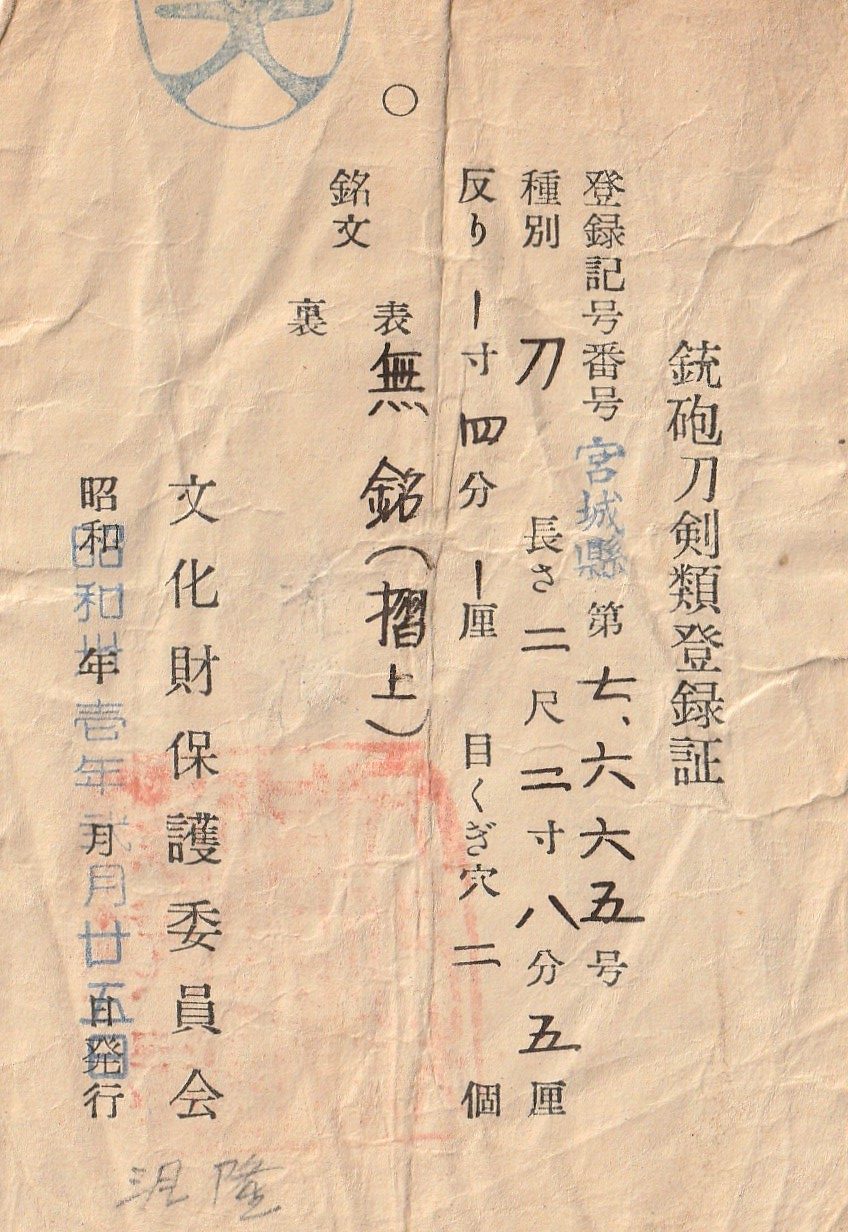 銃砲刀剣類登録証
登録記号番号 宮城縣 第七、六六五号
種別 刀 長さ 二尺二寸八分五厘
反り 一寸四分一厘 目くぎ穴 二 個
銘文 表 無銘(摺上)
裏
文化財保護委員会
昭和 年 月 日発行
昭和卅壱年弐月廿五日